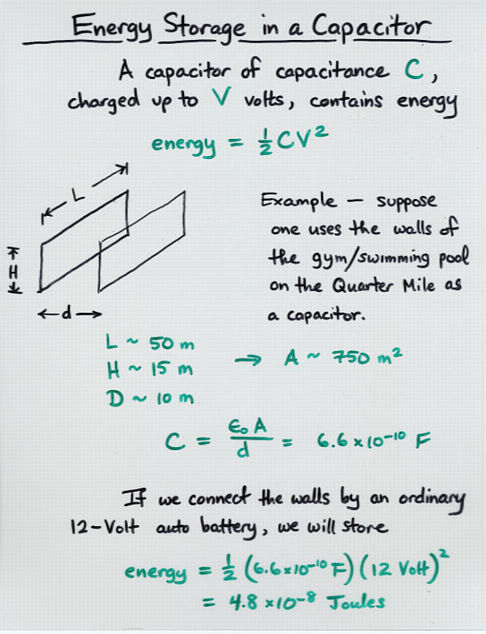 Energy Storage in a Capacitor
A capacitor of capacitance C,
charged up to V volts, contains energy
energy = ½CV²
L
H
d
Example — suppose
one uses the walls of
the gym/swimming pool
on the Quarter Mile as
a capacitor.
L ~ 50 m
H ~ 15 m → A ~ 750 m²
D ~ 10 m
C = ε₀A/d = 6.6×10⁻¹⁰ F
If we connect the walls by an ordinary
12-Volt auto battery, we will store
energy = ½ (6.6×10⁻¹⁰ F)(12 Volt)²
= 4.8 ×10⁻⁸ Joules